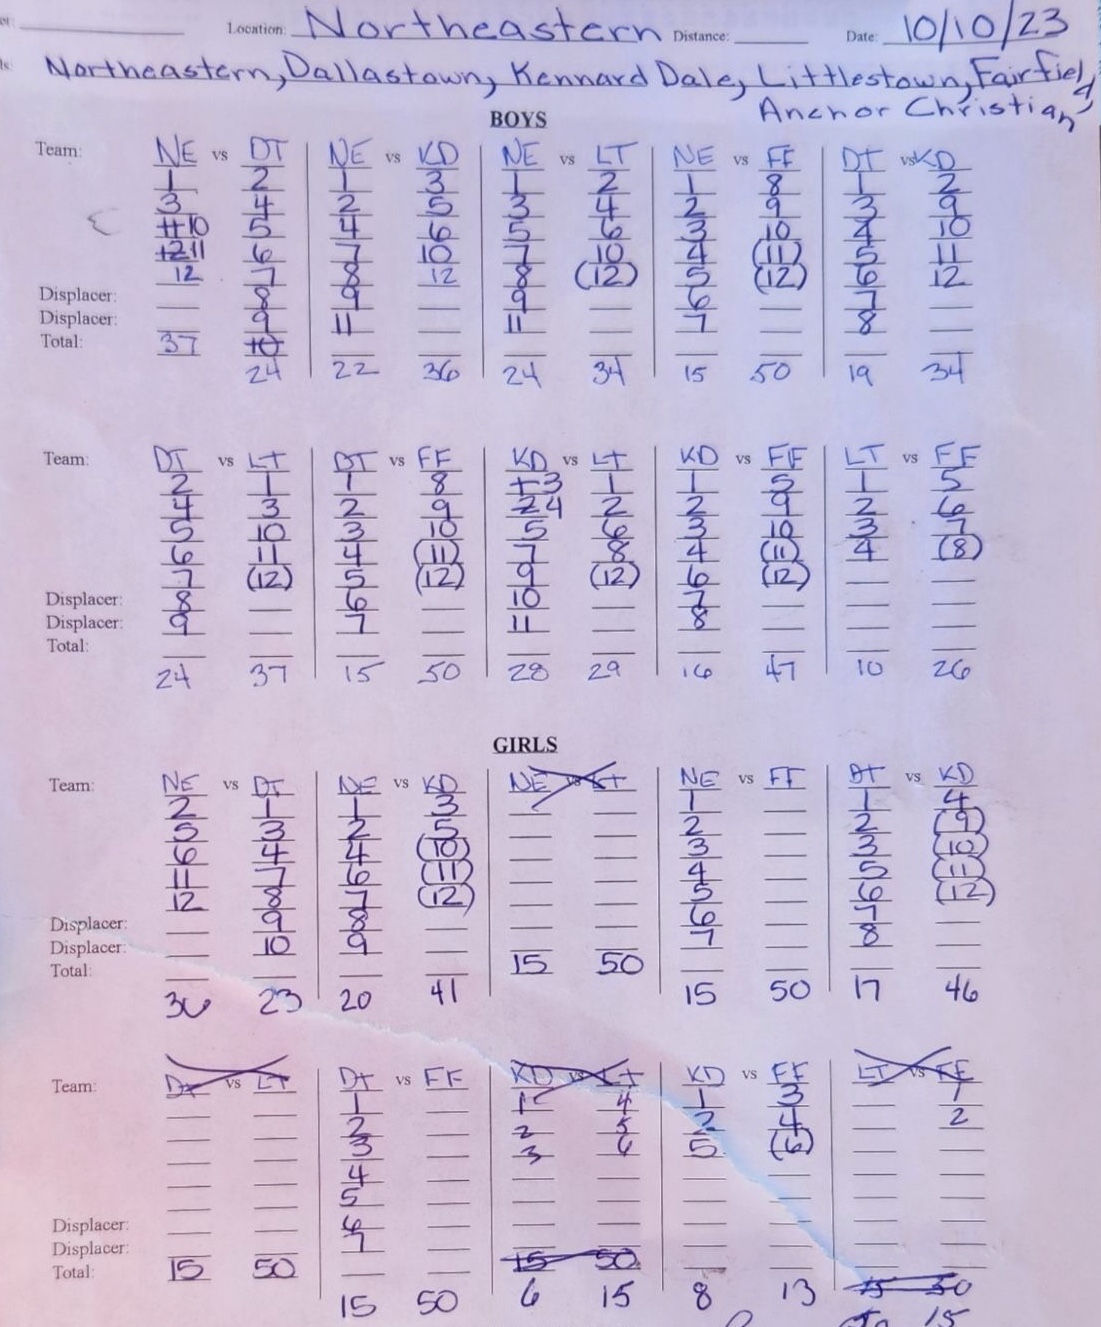 Location: Northeastern Distance: Date: 10/10/23
Northeastern, Dallastown, Kennard Dale, Littlestown, Fairfield,
Anchor Christian
BOYS
Team: NE vs DT NE vs KD NE vs LT NE vs FF DT vs KD
1 2 1 3 1 2 1 8 1 2
3 4 2 5 3 4 2 9 3 9
10 5 4 6 5 6 3 10 4 10
11 6 7 10 7 10 4 (11) 5 11
12 7 8 12 8 (12) 5 (12) 6 12
Displacer: 8 9 9 6 7
Displacer: 9 11 11 7 8
Total: 37 10
24 22 36 24 34 15 50 19 34
Team: DT vs LT DT vs FF KD vs LT KD vs FF LT vs FF
2 1 1 8 3 1 1 5 1 5
4 3 2 9 4 2 2 9 2 6
5 10 3 10 5 6 3 10 3 7
6 11 4 (11) 7 8 4 (11) 4 (8)
7 (12) 5 (12) 9 (12) 6 (12)
Displacer: 8 6 10 7
Displacer: 9 7 11 8
Total:
24 37 15 50 28 29 16 47 10 26
GIRLS
Team: NE vs DT NE vs KD NE vs LT NE vs FF DT vs KD
2 1 1 3 1 1 4
5 3 2 (5) 2 2 (9)
6 4 4 (10) 3 3 (10)
11 7 6 (11) 4 5 (11)
12 8 7 (12) 5 6 (12)
Displacer: 9 8 6 7
Displacer: 10 9 7 8
Total: 15 50
36 23 20 41 15 50 17 46
Team: DT vs LT DT vs FF KD vs LT KD vs FF LT vs FF
1 1 4 1 3 1
2 2 5 2 4 2
3 3 6 5 (6)
4
5
Displacer: 6
Displacer: 7
Total: 15 50 15 50
15 50 6 15 8 13 15 50
15